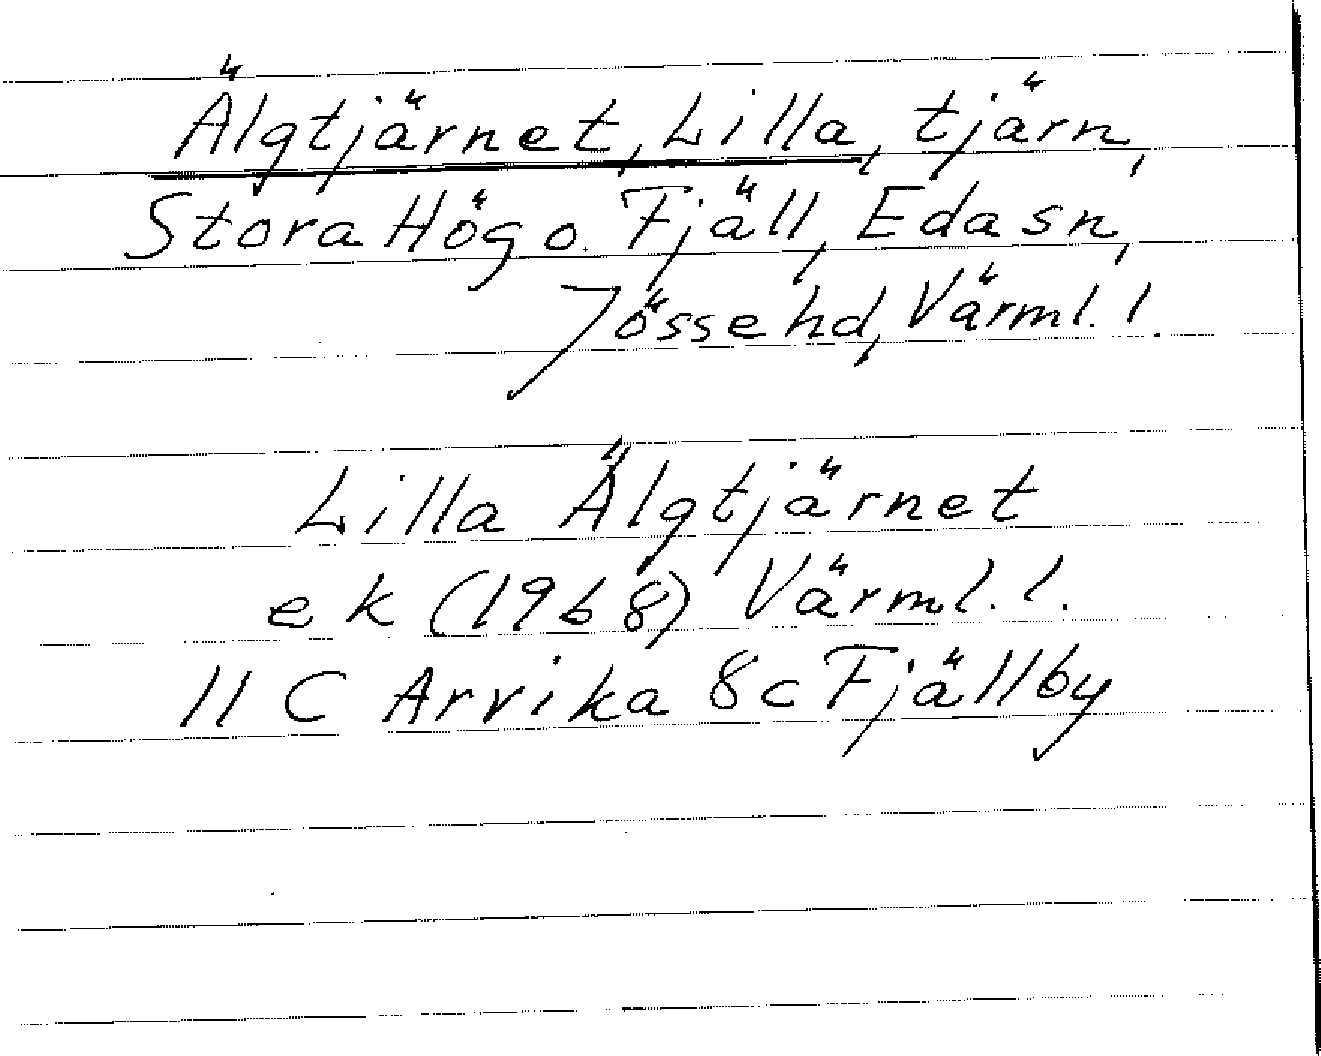 Älgtjärnet, Lilla, tjärn,
Stora Hög o. Fjäll, Eda sn,
Jösse hd, Värml. l.
Lilla Älgtjärnet
ek (1968) Värml. l.
11 C Arvika 8c Fjällby